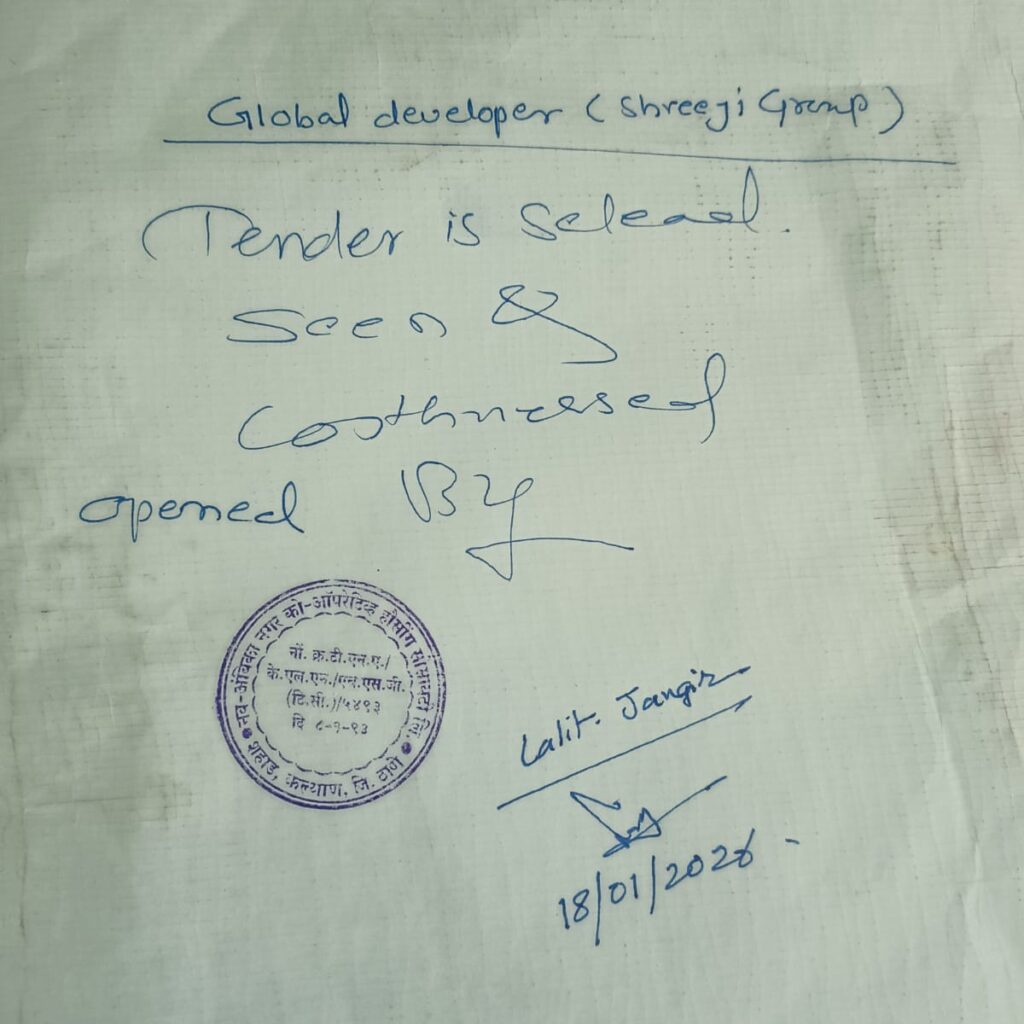 Global developer (Shreeji Group)
Tender is Selead.
Seen &
opened By
नव-अंबिका नगर को-ऑपरेटिव्ह हौसींग सोसायटी लि.
नों. क्र.टी.एन.ए./
के.एल.एन./एच.एस.जी.
(टि.सी.)/५४९३
दि ८-१-९३
शहाड, कल्याण, जि. ठाणे
Lalit. Jangir
18/01/2026